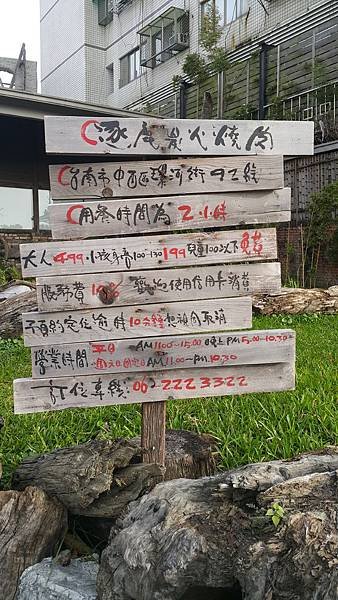 涿鹿炭火燒肉
台南市中西區環河街92號
用餐時間為2小時
大人499.小孩身高100-130 199 兒童100以下免費
服務費10% 歡迎使用信用卡消費
不負約定位逾時10分鐘恕神自取消
營業時間 平日 AM11:00~15:00 晚上PM5:00-10:30
AM11:00~PM10:30
訂位專線:06 222 3322